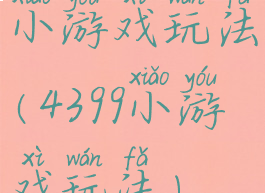 xiǎo yóu xì wán fǎ
小游戏玩法
xiǎo yóu
(4399小游
xì wán fǎ
戏玩法)